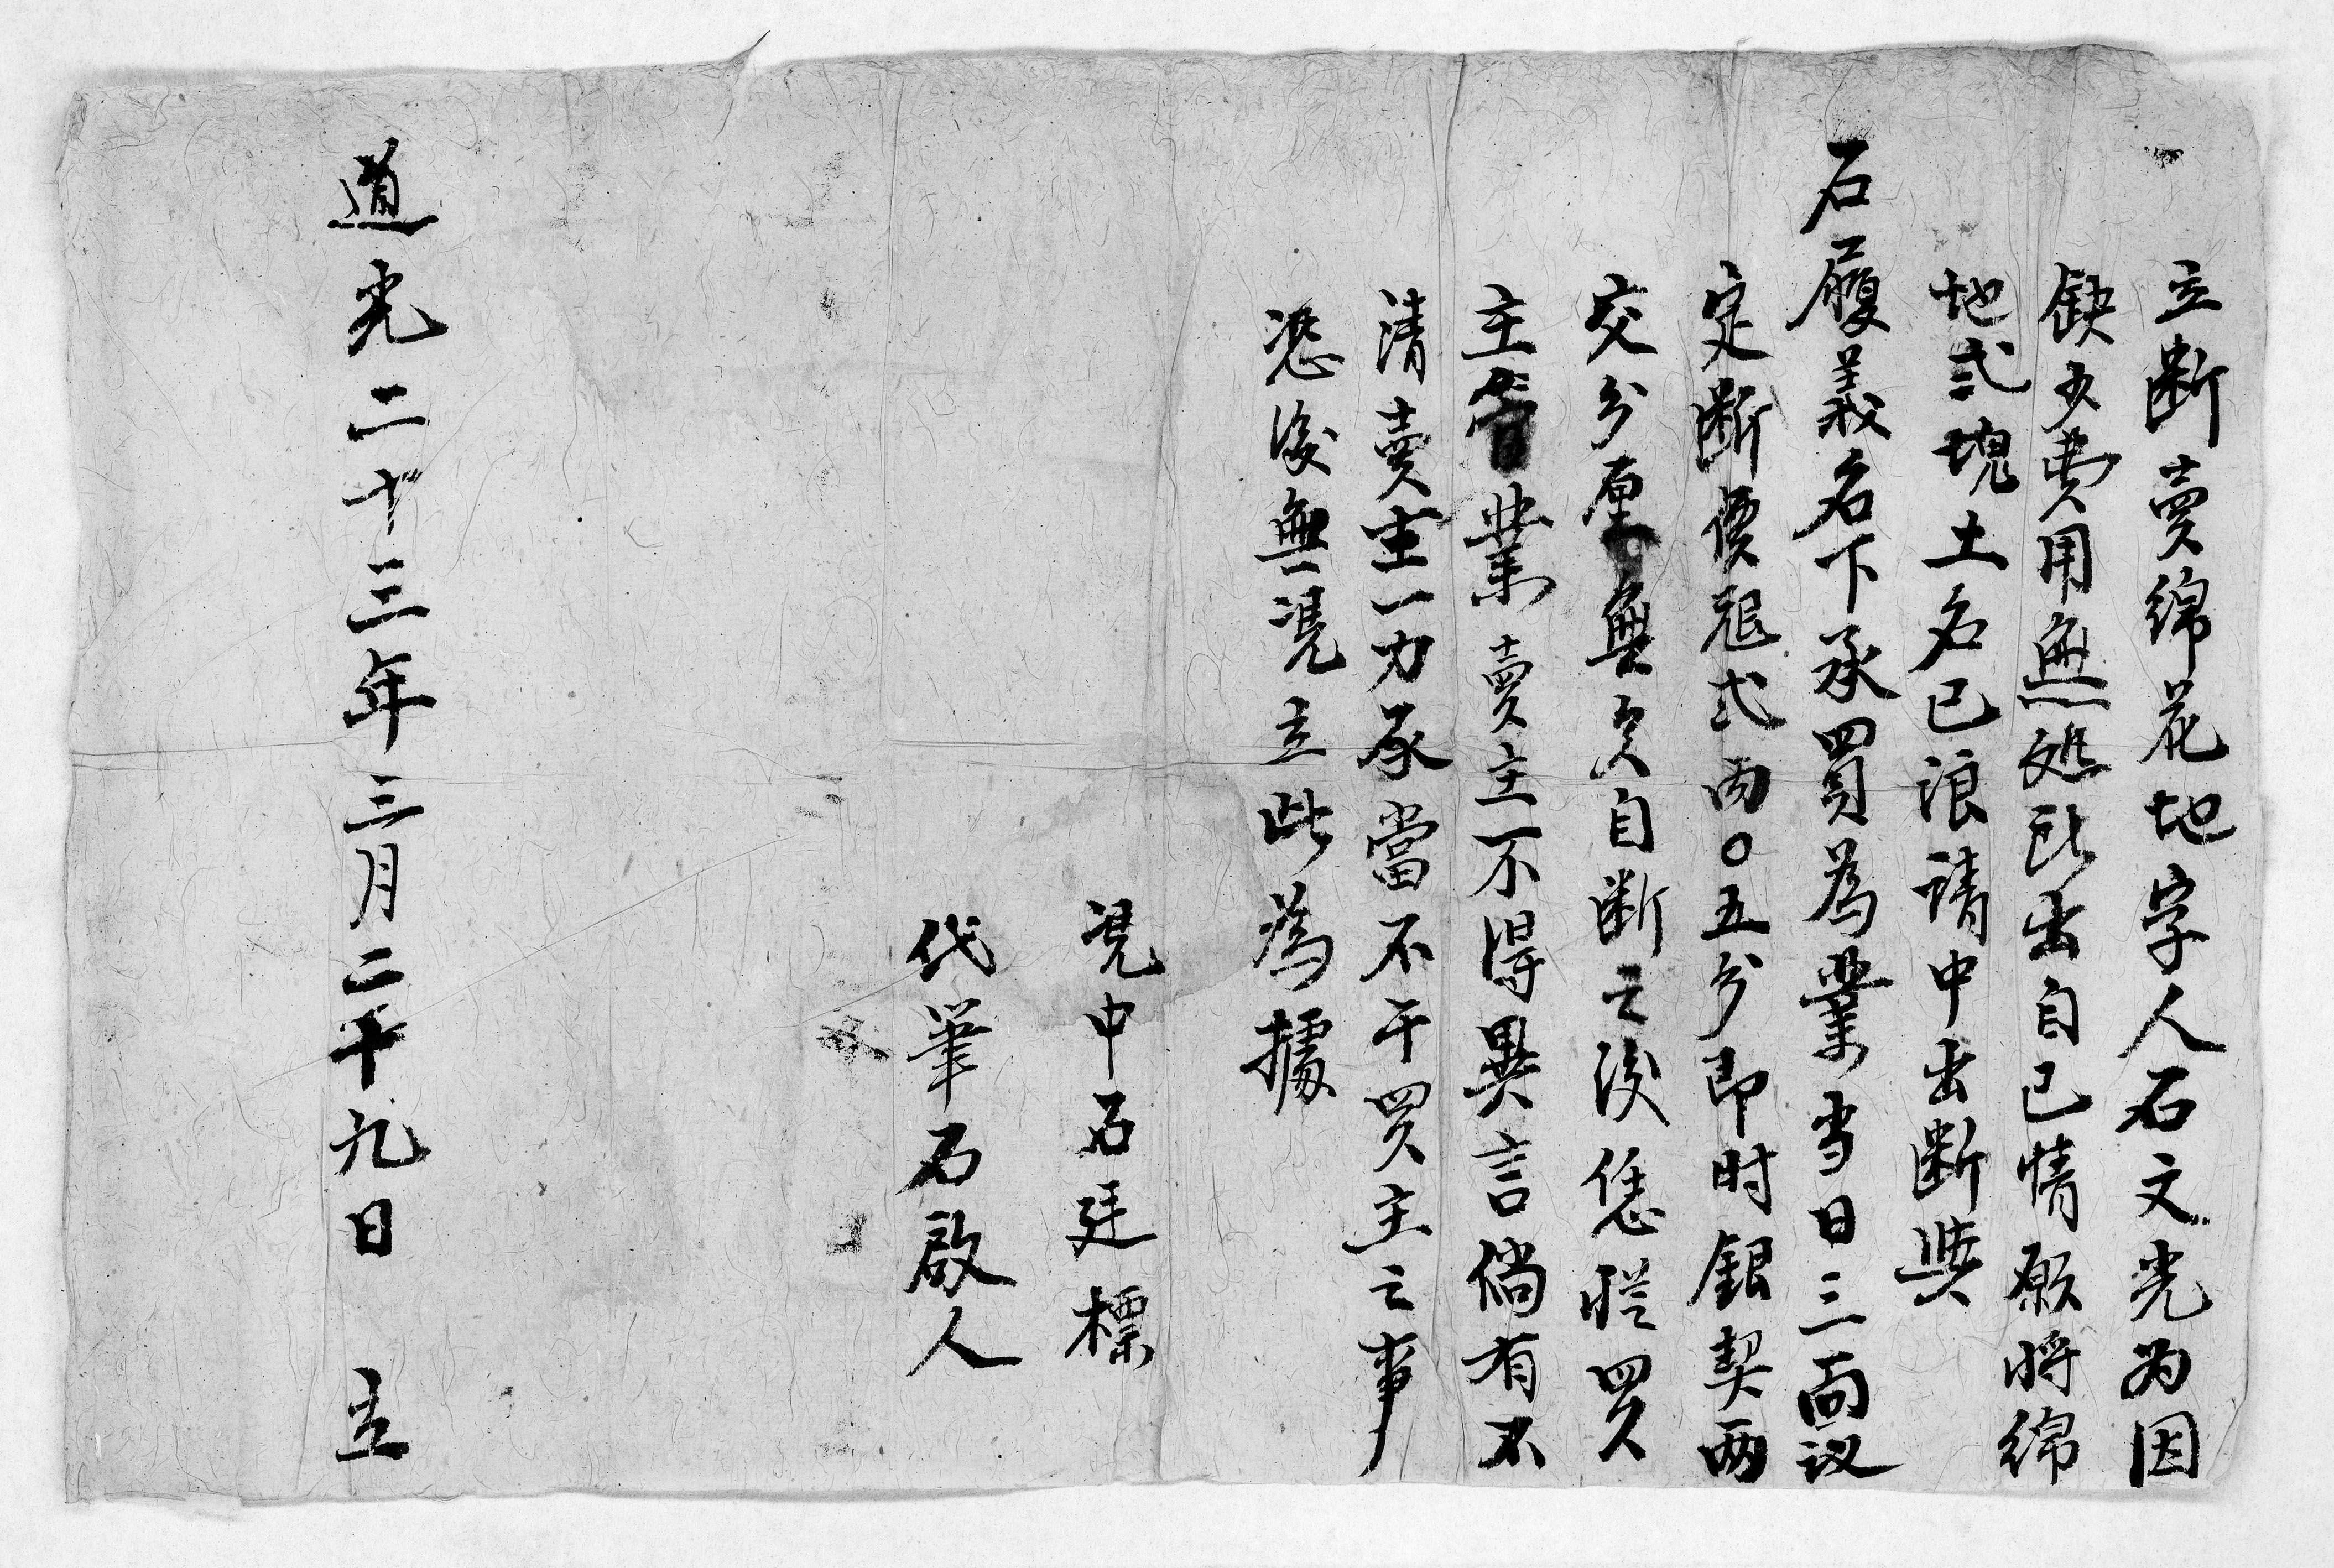 立断賣綿花地字人石文光为因
缺少費用無処所出自己情愿将綿
地弍塊土名已浪請中出断與
石履義名下承買為業当日三面议
定断價艮弍両〇五分即时銀契两
交分厘無欠自断之後恁從買
主管業賣主不得異言倘有不
清賣主一力承當不干買主之事
恐後無凴立此為據
凴中石廷標
代筆石啟人
道光二十三年三月二十九日 立